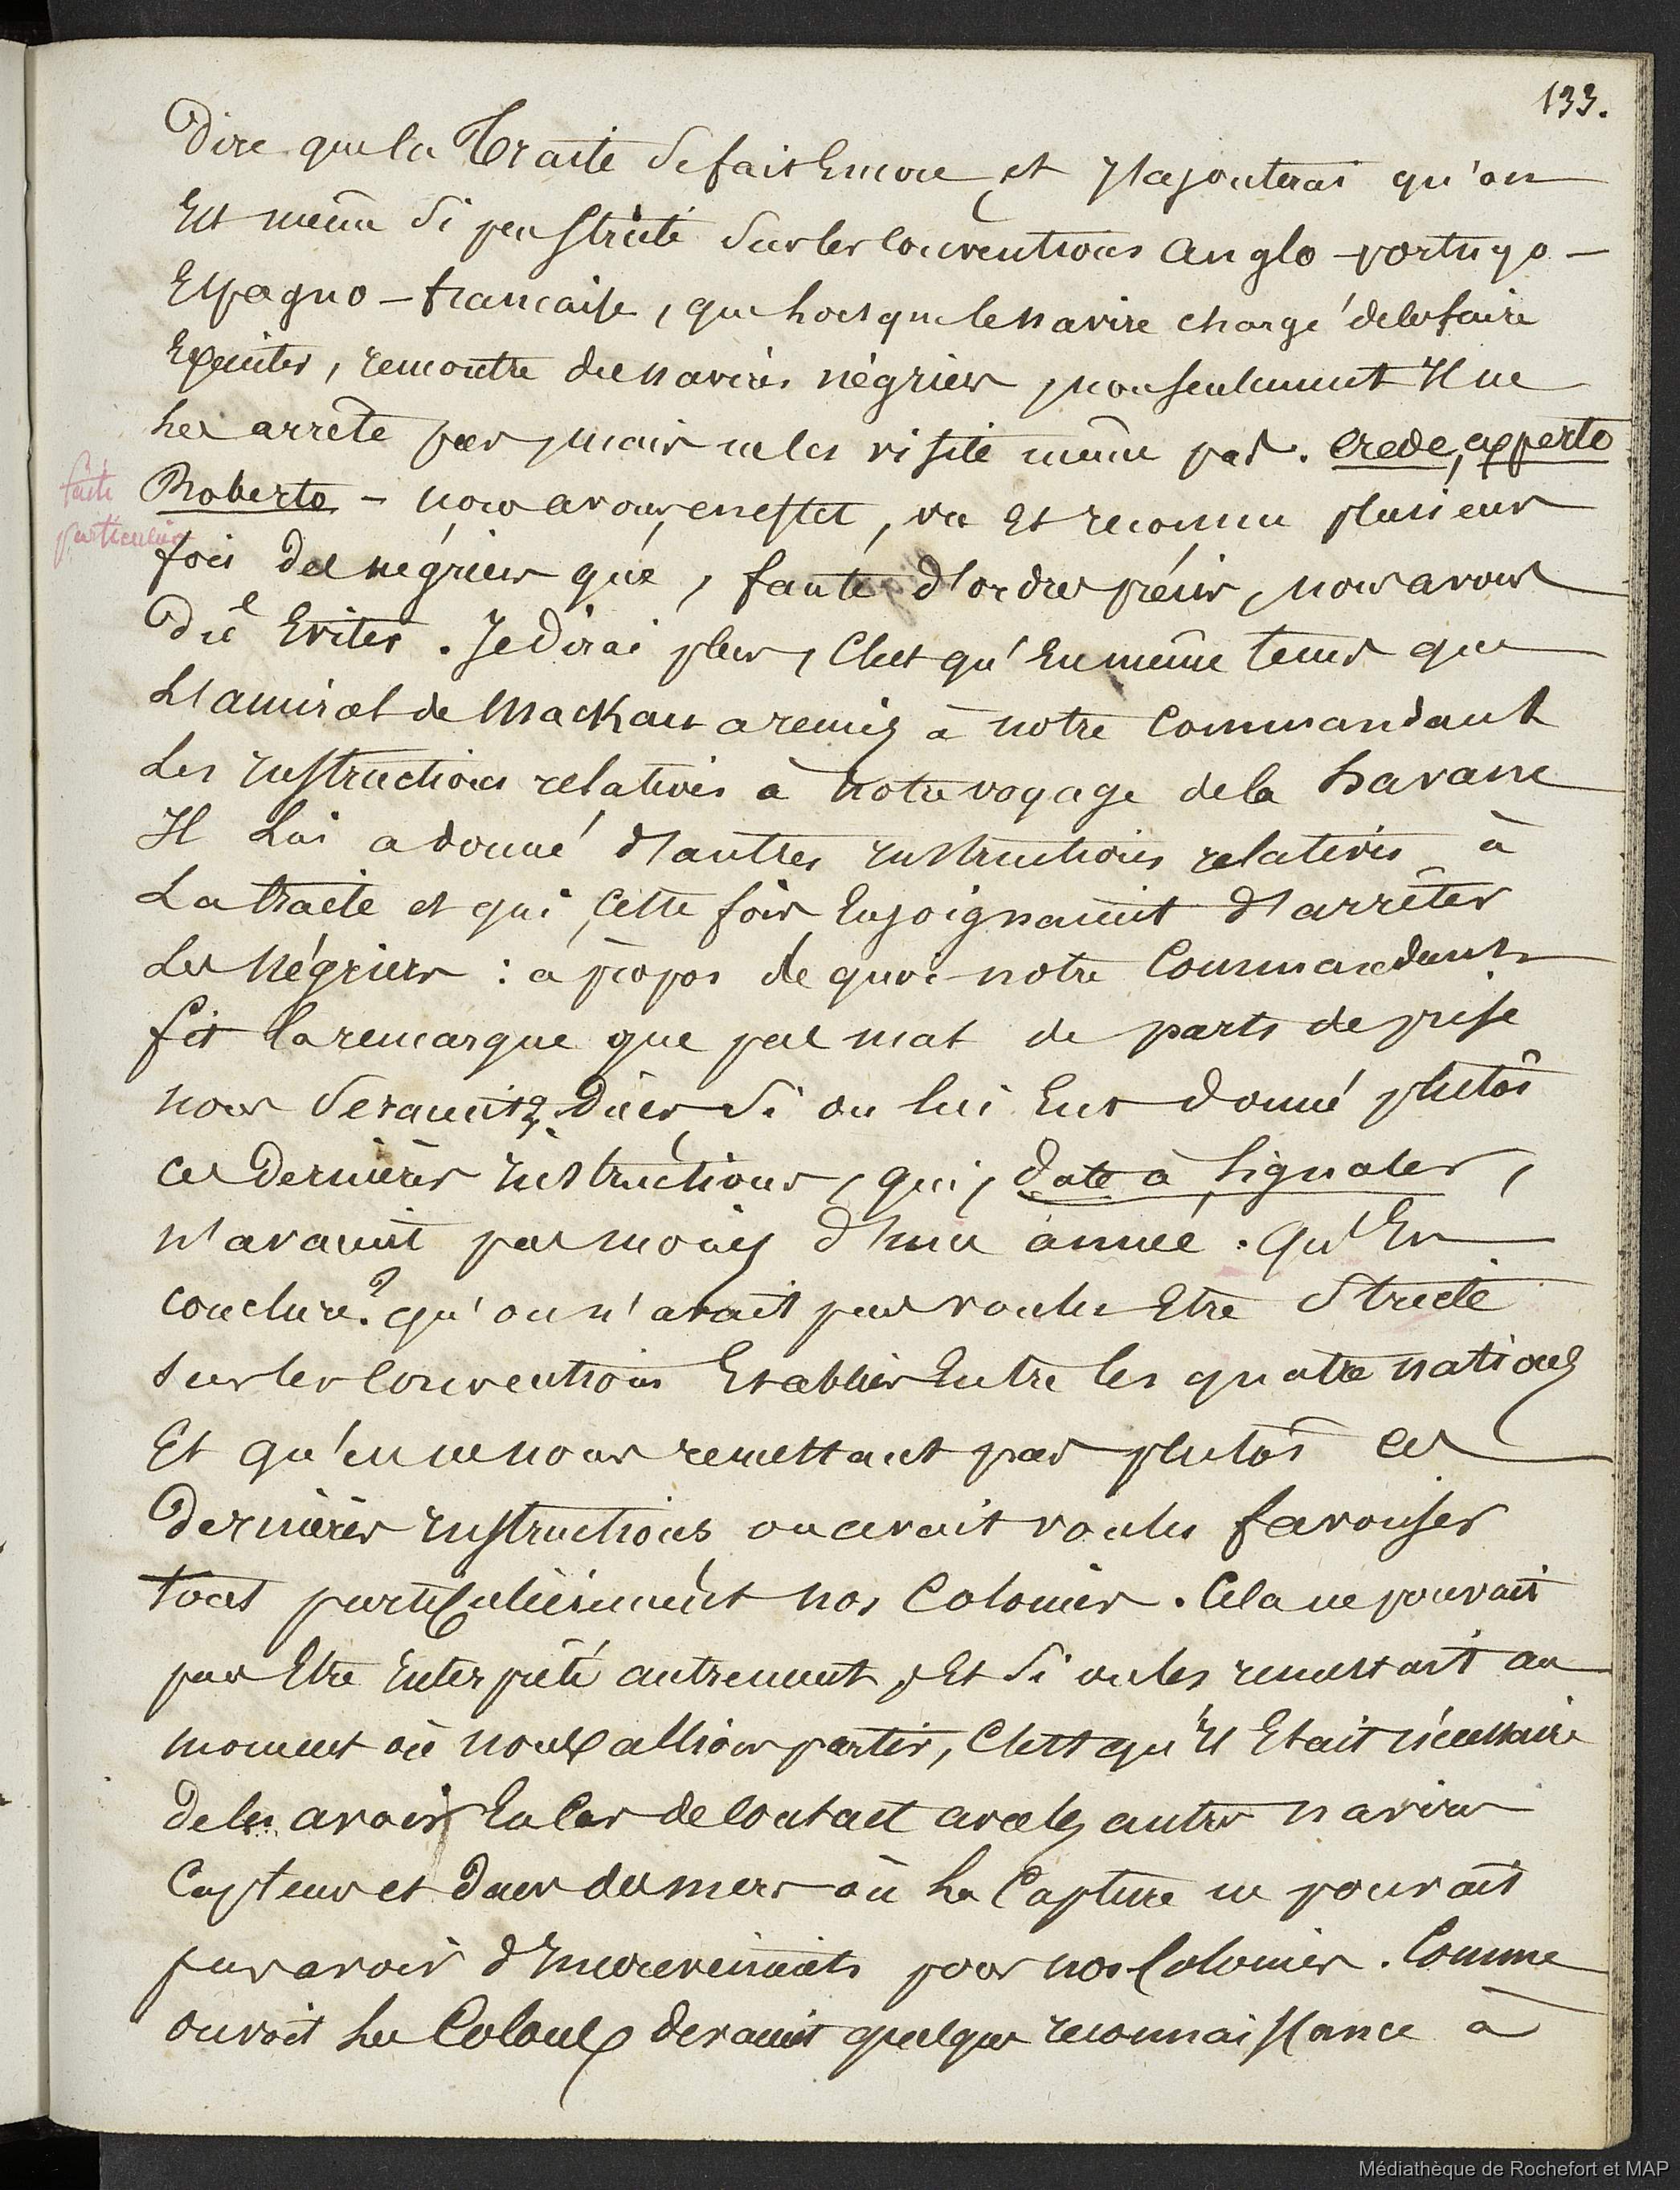 133.
Dire que la Traite se fait Encore et J'ajouterai qu'on
Est même si peu stricte sur les conventions anglo-portugo-
Espagno-française, que lorsque le navire chargé de les faire
Exécuter, rencontre des navires négriers, non seulement Il ne
les arrête pas, mais ne les visite même pas. crede, experto
Roberto - nous avons, en effet, vu et reconnu plusieurs
faits
particuliers
fois des négriers que, faute d'ordres précis, nous avons
Dû Eviter. Je Dirai plus, C'est qu'en même tems que
L'amiral de Mackau a remis à notre Commandant
Les Instructions relatives à notre voyage de la havane
Il Lui a donné d'autres instructions relatives à
La traite et qui, cette fois, Enjoignaient d'arrêter
Les Négriers : à propos de quoi notre Commandant
fit la remarque que pas mal de parts de prise
nous seraient dues, si on lui Eut donné plutôt
ces Dernières instructions, qui, date à signaler,
n'avaient pas moins d'une année. Qu'En
conclure? qu'on n'avait pas voulu Etre stricte
sur les Conventions Etablies Entre les quatre nations
Et qu'en ne nous remettant pas plutôt ces
Dernières instructions on avait voulu favoriser
tout particulièrement nos Colonies. Cela ne pouvait
pas Etre interprété autrement, Et si on les remettait au
moment où nous allions partir, C'est qu'Il Etait nécessaire
de les avoir En Cas de Contact avec les autres navires
Capteurs et dans des mers où la Capture ne pouvait
pas avoir d'inconvénients pour nos Colonies. Comme
on voit les Colons devaient quelque reconnaissance à
Médiathèque de Rochefort et MAP